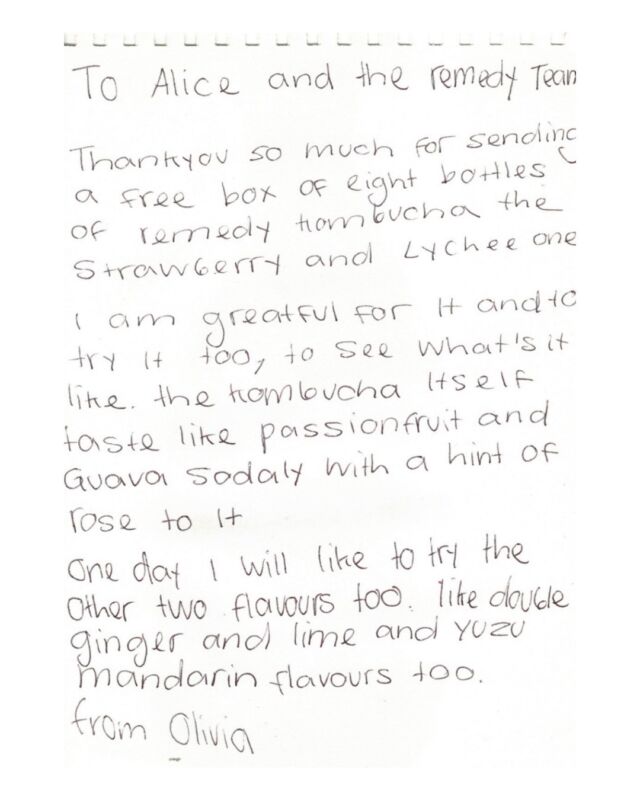 To Alice and the remedy Team
Thankyou so much for sending
a free box of eight bottles
of remedy kombucha the
Strawberry and Lychee one
I am greatful for It and to
try It too, to see what's it
like. the kombucha Itself
taste like passionfruit and
Guava sodaly with a hint of
rose to It
One day I will like to try the
Other two flavours too. like double
ginger and lime and yuzu
mandarin flavours too.
from Olivia